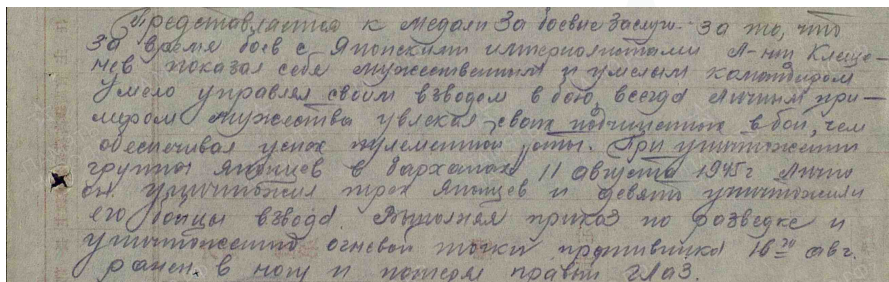 Представляется к медали За боевые заслуги за то, что
за время боев с Японскими империалистами Л-нт Клеще-
нев показал себя мужественным и умелым командиром
Умело управлял своим взводом в бою, всегда личным при-
мером мужества увлекал своих подчиненных в бой, чем
обеспечивал успех пулеметной роты. При уничтожении
группы японцев в барханах 11 августа 1945г лично
он уничтожил трех японцев и девять уничтожили
его бойцы взвода. Выполняя приказ по разведке и
уничтожению огневой точки противника 16го авг.
ранен в ногу и потерял правый глаз.